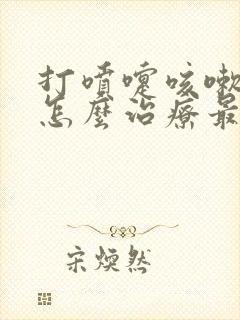 打噴嚏咳嗽
怎麼治療最
宋煥然